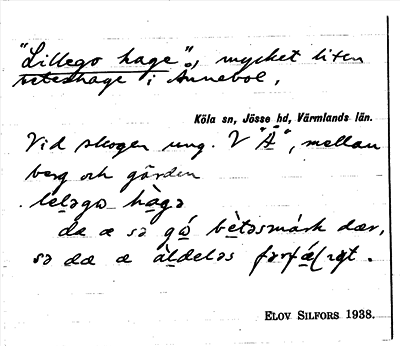 "Lillego hage", mycket liten
beteshage i Annebol.
Köla sn, Jösse hd, Värmlands län.
Vid skogen ung. V "Å", mellan
berg och gården
hàga
dæ æ sə bètəsmárk dær,
sə dæ æ àldeləs
ELOV SILFORS 1938.